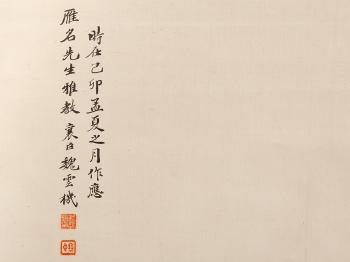 時在己卯孟夏之月作應
雁名先生雅教 襄臣魏雲機